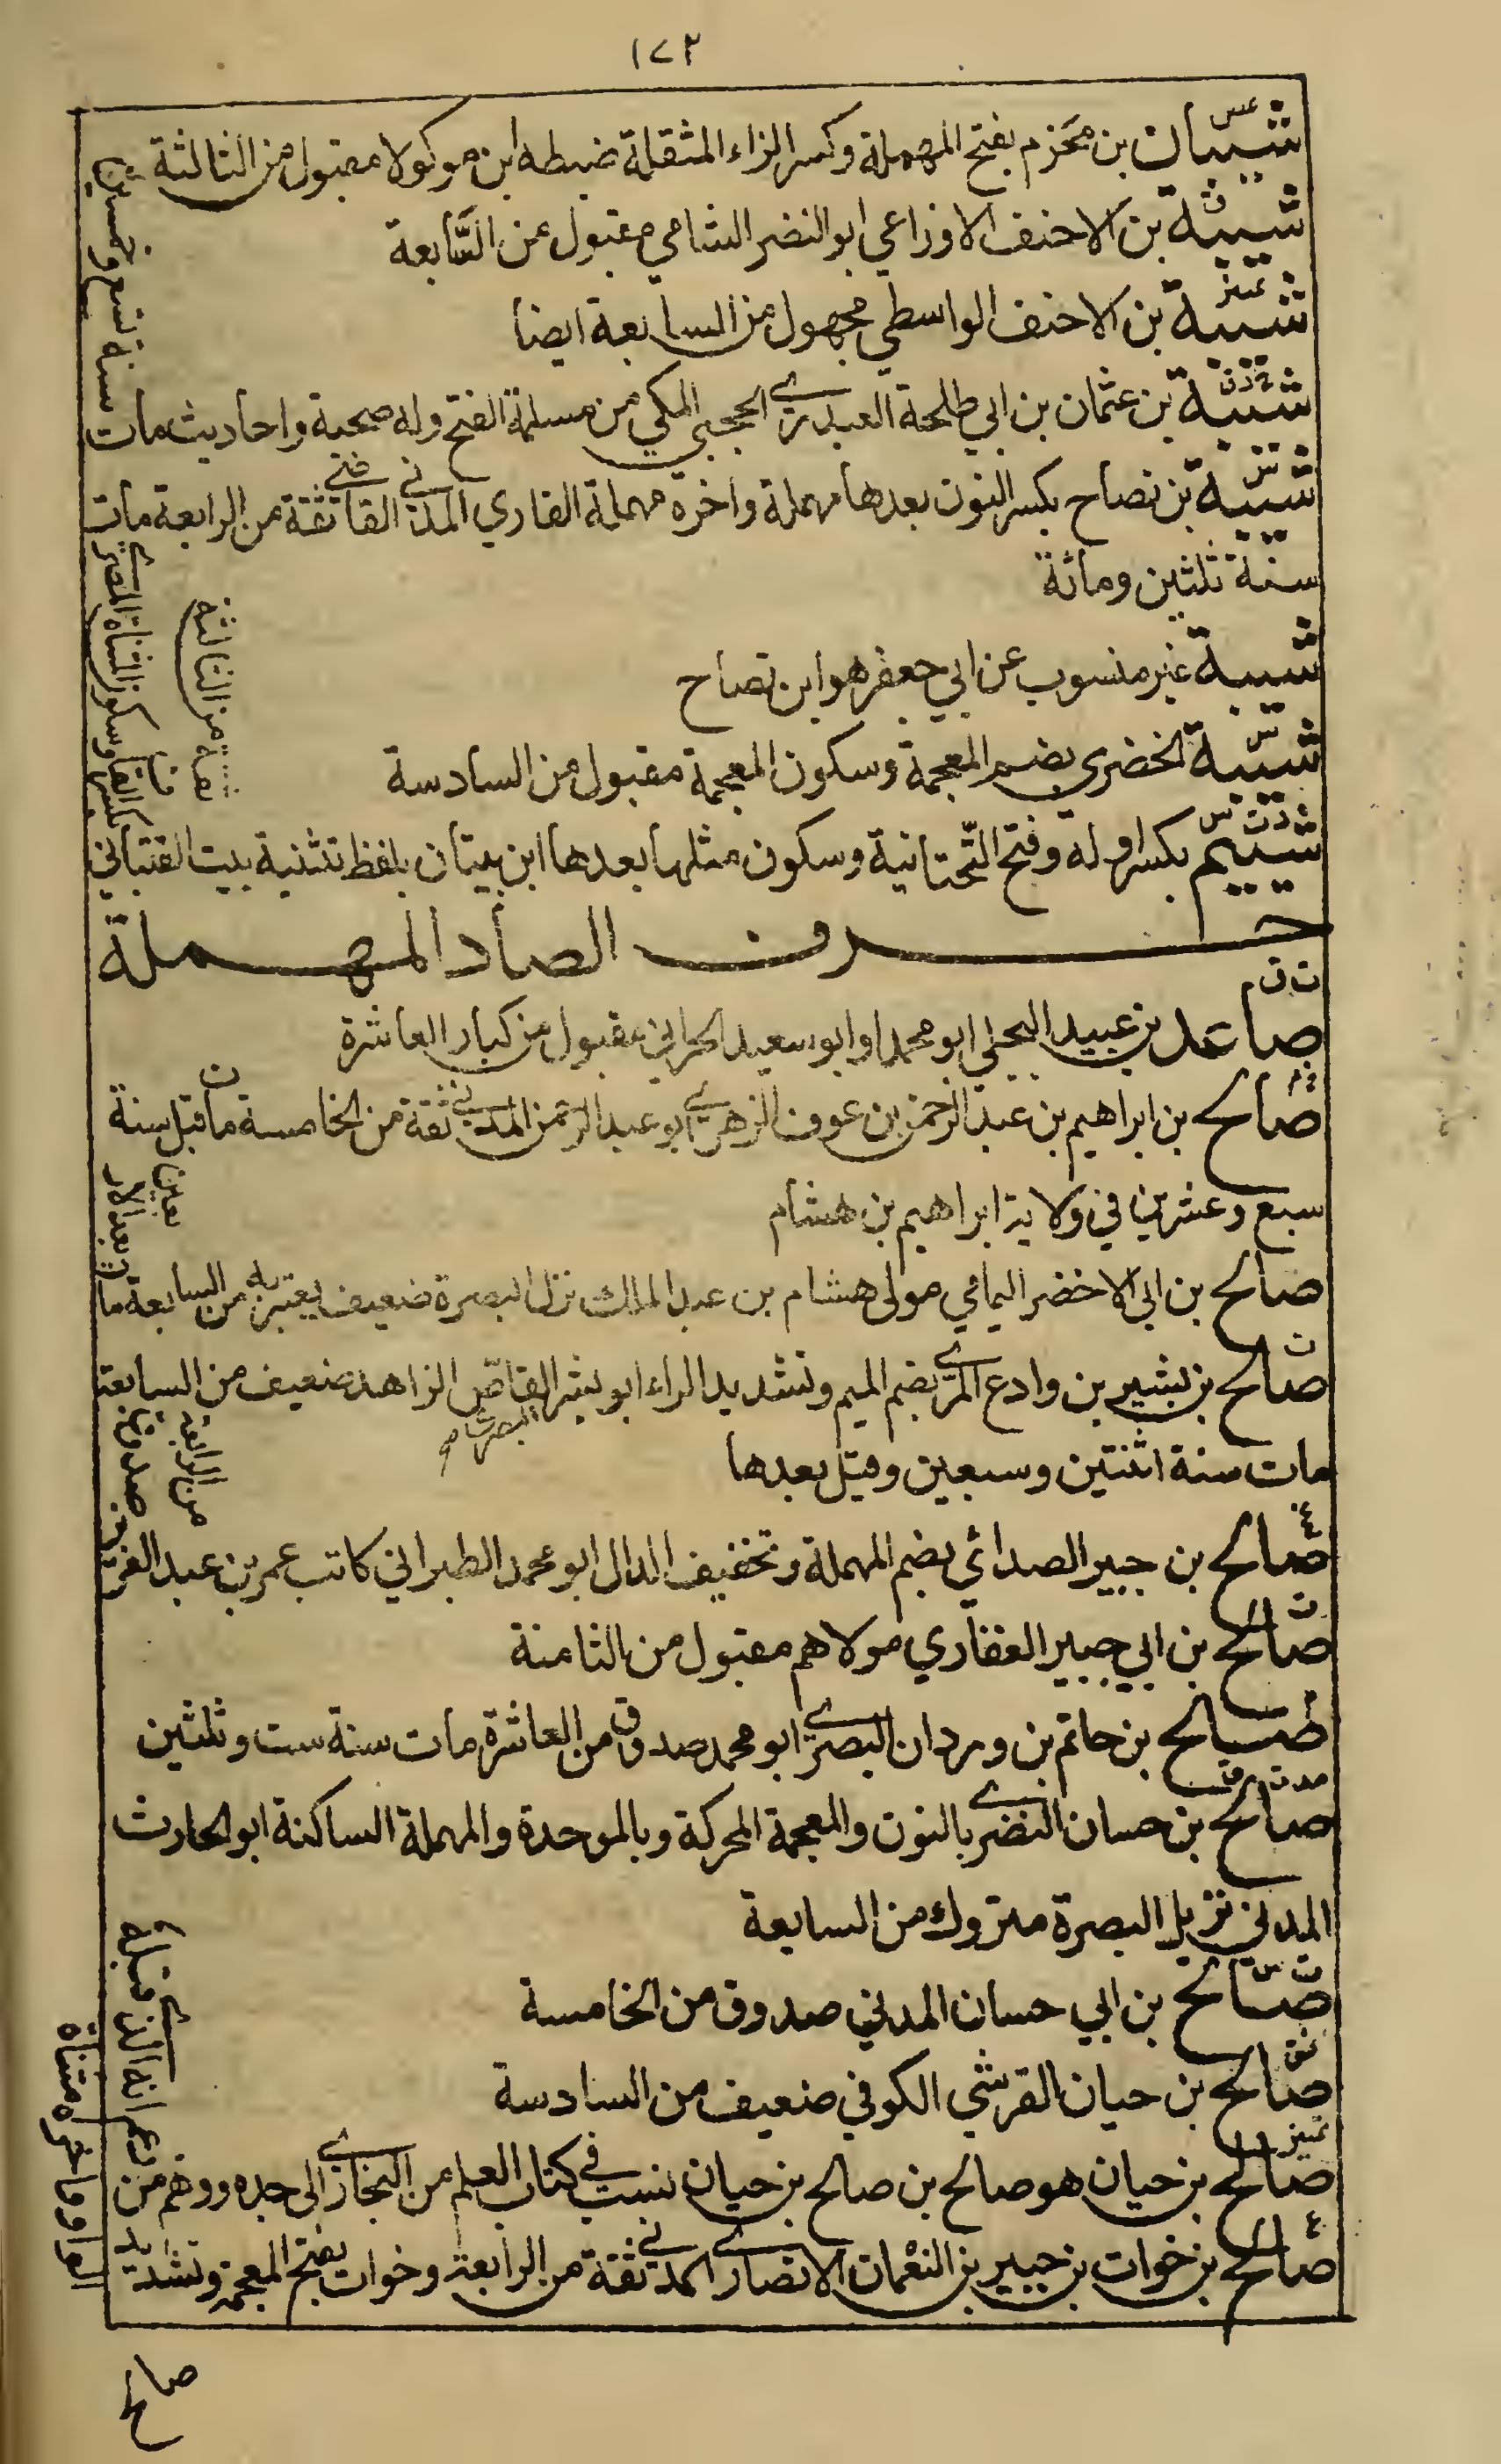 ١٧٢
عس
شيبان بن محزم بفتح المهملة وكسر الزاء المثقلة ضبطه ابن موكولا مقبول من الثالثة
ق
شيبة بن الاحنف الاوزاعي ابو النضر الشامي مقبول من السابعة
تميز
شيبة بن الاحنف الواسطي مجهول من السابعة ايضا
خ د ق
شيبة بن عثمان بن ابي طلحة العبدري الحجبي المكي من مسلمة الفتح وله صحبة واحاديث مات
سنة تسع وخمسين
س
شيبة بن نصاح بكسر النون بعدها مهملة واخره مهملة القاري المدني القاضي ثقة من الرابعة مات
سنة ثلثين ومائة
شيبة غير منسوب عن ابي جعفر هو ابن نصاح
س
شيبة الخضري بضم المعجمة وسكون المعجمة مقبول من السادسة
د ت س
شييم بكسر اوله وفتح التحتانية وسكون مثلها بعدها ابن بيتان بلفظ تثنية بيت القتباني
بكسر القاف وسكون المثناة المصري
ثقة من الثالثة
حرف الصاد المهملة
ت ق
صاعد بن عبيد البجلي ابو محمد او ابو سعيد الحراني مقبول من كبار العاشرة
خ م
صالح بن ابراهيم بن عبد الرحمن بن عوف الزهري ابو عبد الرحمن المدني ثقة من الخامسة مات قبل سنة
سبع وعشرين في ولاية ابراهيم بن هشام
صالح بن ابي الاخضر اليمامي مولى هشام بن عبد الملك نزل البصرة ضعيف يعتبر به من السابعة ما
ت بعد الار
بعين
ت
صالح بن بشير بن وادع المري بضم الميم وتشديد الراء ابو بشر القاص الزاهد ضعيف من السابعة
البصري
مات سنة اثنتين وسبعين وقيل بعدها
عخ
صالح بن جبير الصدائي بضم المهملة وتخفيف الدال ابو محمد الطبراني كاتب عمر بن عبد العزيز
صدوق
من الرابعة
ت
صالح بن ابي جبير الغفاري مولاهم مقبول من الثامنة
م
صالح بن حاتم بن وردان البصري ابو محمد صدوق من العاشرة مات سنة ست وثلثين
مد ت ق
صالح بن حسان النضري بالنون والمعجمة المحركة وبالموحدة والمهملة الساكنة ابو الحارث
المدني نزيل البصرة متروك من السابعة
ت س
صالح بن ابي حسان المدني صدوق من الخامسة
فق
صالح بن حيان القرشي الكوفي ضعيف من السادسة
تميز
صالح بن حيان هو صالح بن صالح بن حيان نسب في كتاب العلم من البخاري الى جده ووهم من
زعم انه الذي قبله
ع
صالح بن خوات بن جبير بن النعمان الانصاري المدني ثقة من الرابعة وخوات بفتح المعجمة وتشديد
الواو واخره مثناة
صالح